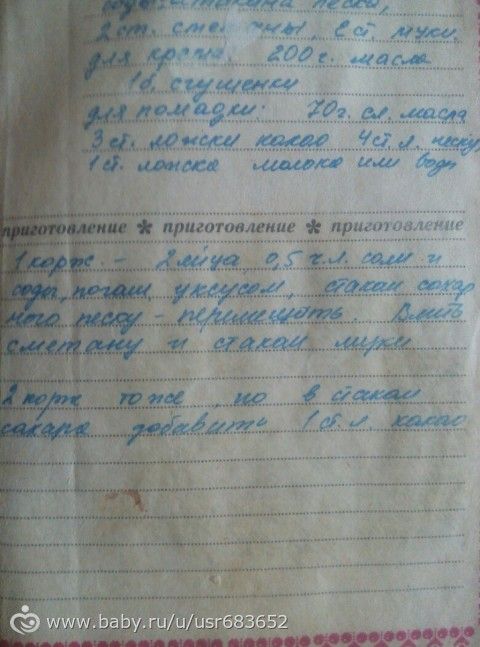 соды, стакана песка,
2 ст. сметаны, 2 ст. муки.
для крема 200 г. масла
1 б. сгущенки
для помадки. 70 г. сл. масла
3 ст. ложки какао 4 ст. л. песку
1 ст. ложка молока или воды
приготовление * приготовление * приготовление
1 корж. - 2 яйца, 0,5 ч. л. соли и
соды, погаш. уксусом, стакан сахар
ного песку - перемешать. Влить
сметану и стакан муки
2 корж то же, но в стакан
сахара добавить 1 ст. л. какао
www.baby.ru/u/usr683652